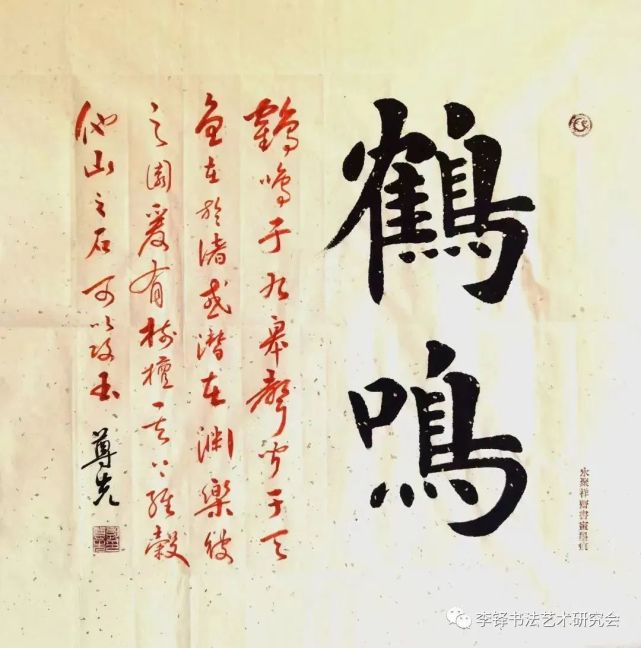 鶴鳴
鶴鳴于九皋聲聞于天
魚在於渚或潛在淵樂彼
之園爰有樹檀其下維榖
他山之石可以攻玉 尊先
李铎书法艺术研究会